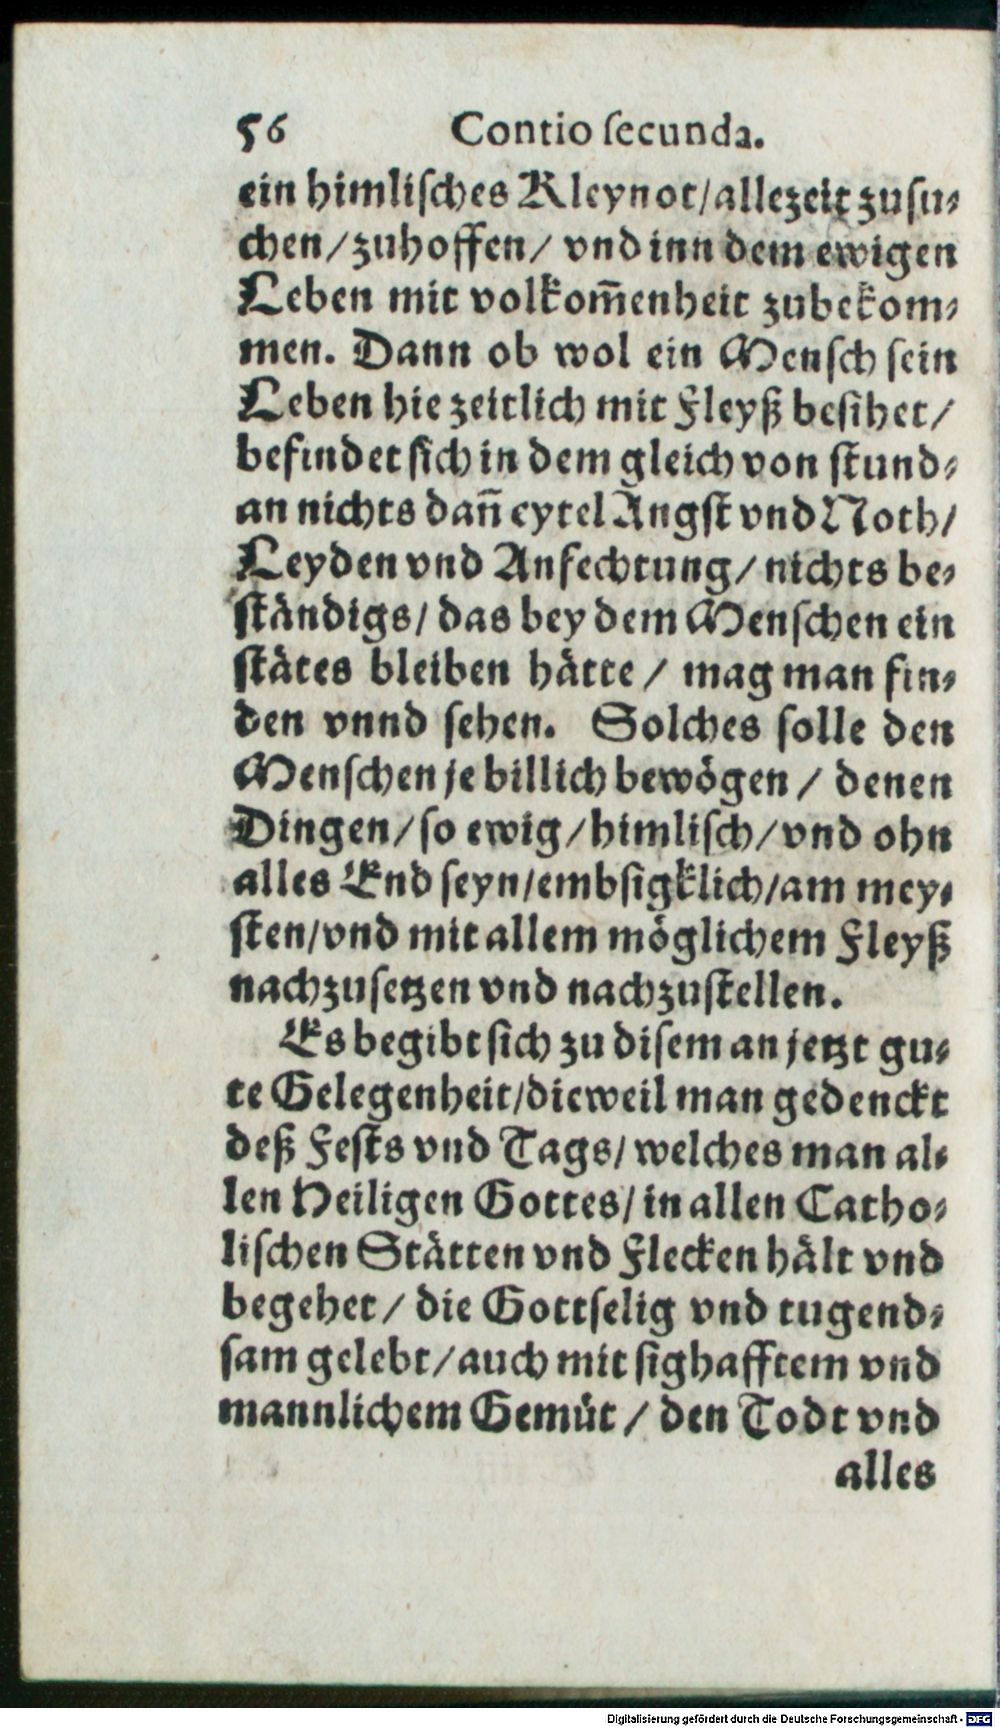 56 Contio secunda.
ein himlisches Kleynot/allezeit zusu⸗
chen/zuhoffen/ vnd inn dem ewigen
Leben mit volkom̃enheit zubekom⸗
men. Dann ob wol ein Mensch sein
Leben hie zeitlich mit Fleyß besihet/
befindet sich in dem gleich von stund⸗
an nichts dañ eytel Angst vnd Noth/
Leyden vnd Anfechtung/ nichts be⸗
ständigs/ das bey dem Menschen ein
stätes bleiben hätte / mag man fin⸗
den vnnd sehen. Solches solle den
Menschen je billich bewögen / denen
Dingen/so ewig/himlisch/vnd ohn
alles End seyn/embsigklich/am mey⸗
sten/vnd mit allem möglichem Fleyß
nachzusetzen vnd nachzustellen.
Es begibt sich zu disem an jetzt gu⸗
te Gelegenheit/dieweil man gedenckt
deß Fests vnd Tags/ welches man al⸗
len Heiligen Gottes/ in allen Catho⸗
lischen Stätten vnd Flecken hält vnd
begehet / die Gottselig vnd tugend⸗
sam gelebt/auch mit sighafftem vnd
mannlichem Gemüt / den Todt vnd
alles
Digitalisierung gefördert durch die Deutsche Forschungsgemeinschaft - DFG